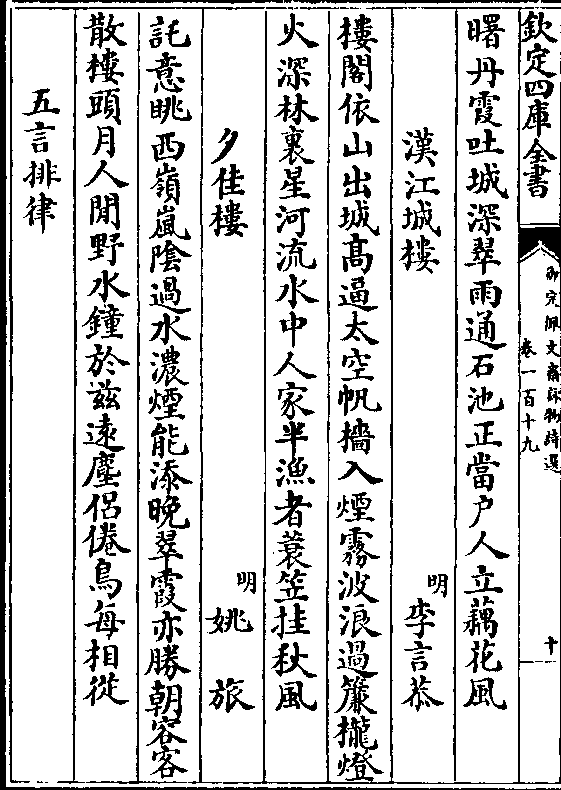 欽定四庫全書
御定佩文齋詠物詩選
卷一百十九
十
曙丹霞吐城深翠雨通石池正當户人立藕花風
漢江城樓
明
李言恭
樓閣依山出城高逼太空帆檣入煙霧波浪過簾櫳燈
火深林裏星河流水中人家半漁者蓑笠挂秋風
夕佳樓
明
姚旅
託意眺西嶺嵐陰過水濃煙能添晚翠霞亦勝朝容客
散樓頭月人閒野水鐘於兹遠塵侣倦鳥每相從
五言排律